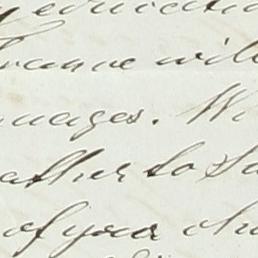 education
France will
uages. W
ather to sta
of your chi